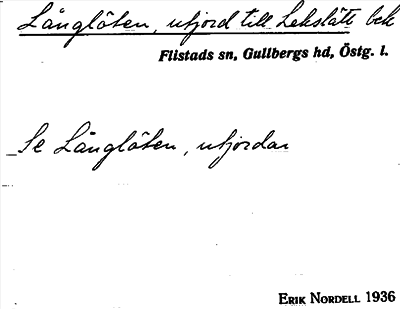 Långlöten, utjord till Lekslätt bek
Flistads sn, Gullbergs hd, Östg. l.
Se Långlöten, utjordar
ERIK NORDELL 1936